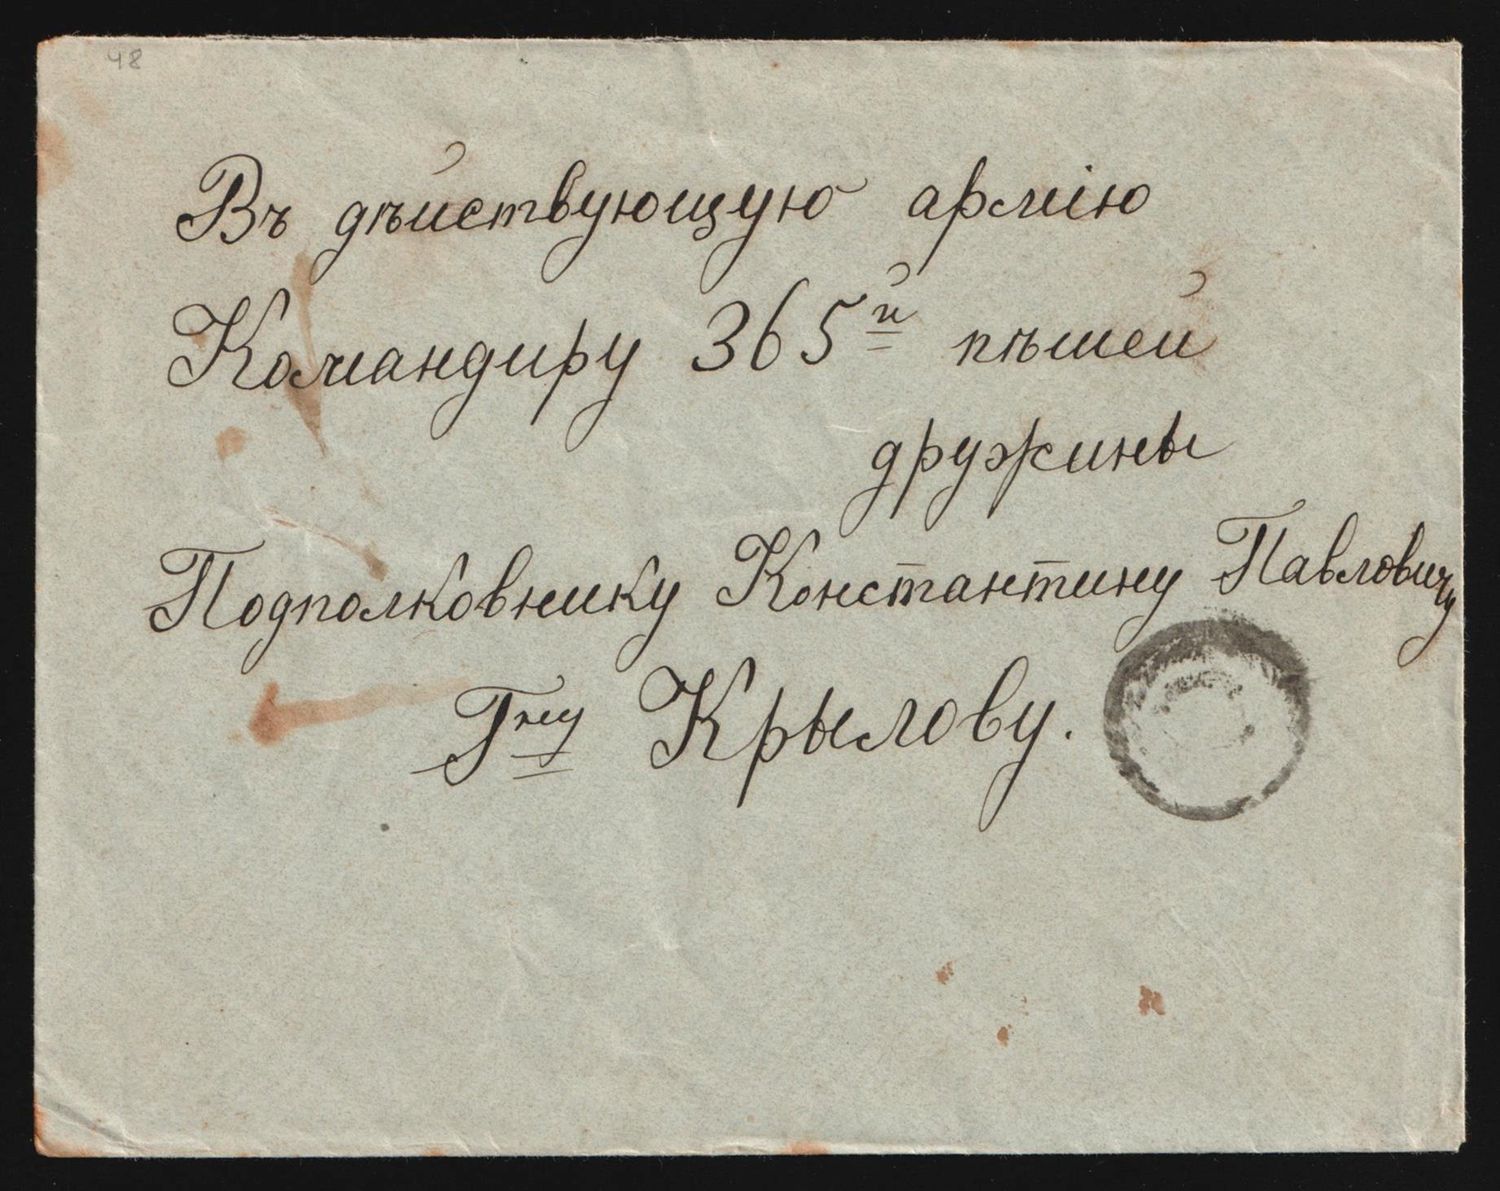 48
Въ дѣйствующую армію
Командиру 365й пѣшей
дружины
Подполковнику Константину Павловичу
Гну Крылову.